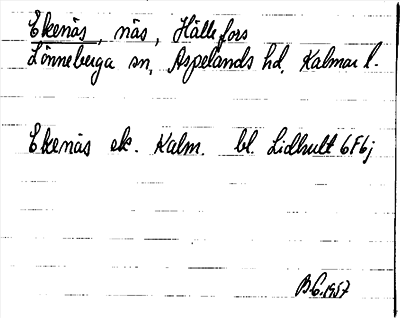 Ekenäs, näs, Hällefors
Lönneberga sn, Aspelands hd, Kalmar l.
Ekenäs ek. Kalm. bl. Lidhult 6F6j
1957